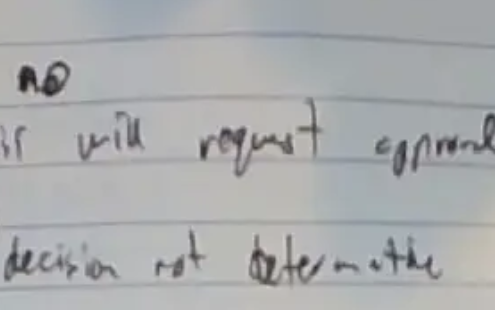 no
will request approval
decision not determative